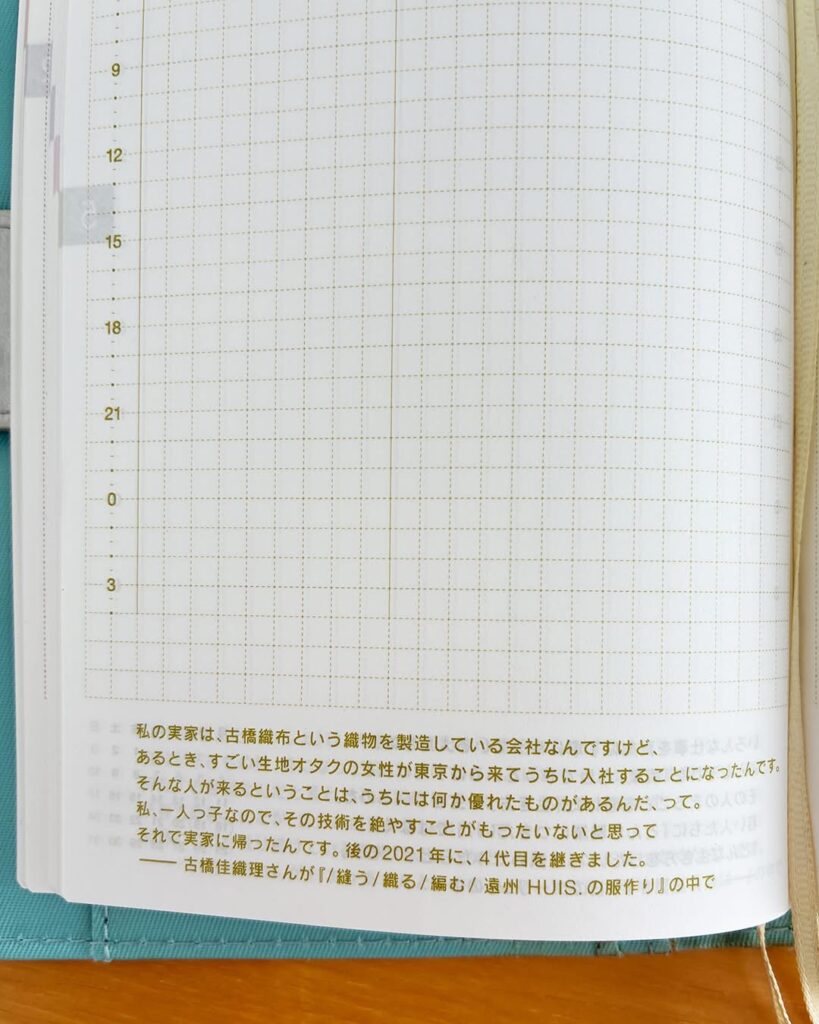 9
12
15
18
21
0
3
私の実家は、古橋織布という織物を製造している会社なんですけど、
あるとき、すごい生地オタクの女性が東京から来てうちに入社することになったんです。
そんな人が来るということは、うちには何か優れたものがあるんだ、って。
私、一人っ子なので、その技術を絶やすことがもったいないと思って
それで実家に帰ったんです。後の2021年に、4代目を継ぎました。
── 古橋佳織理さんが『/縫う/織る/編む/ 遠州 HUIS. の服作り』の中で